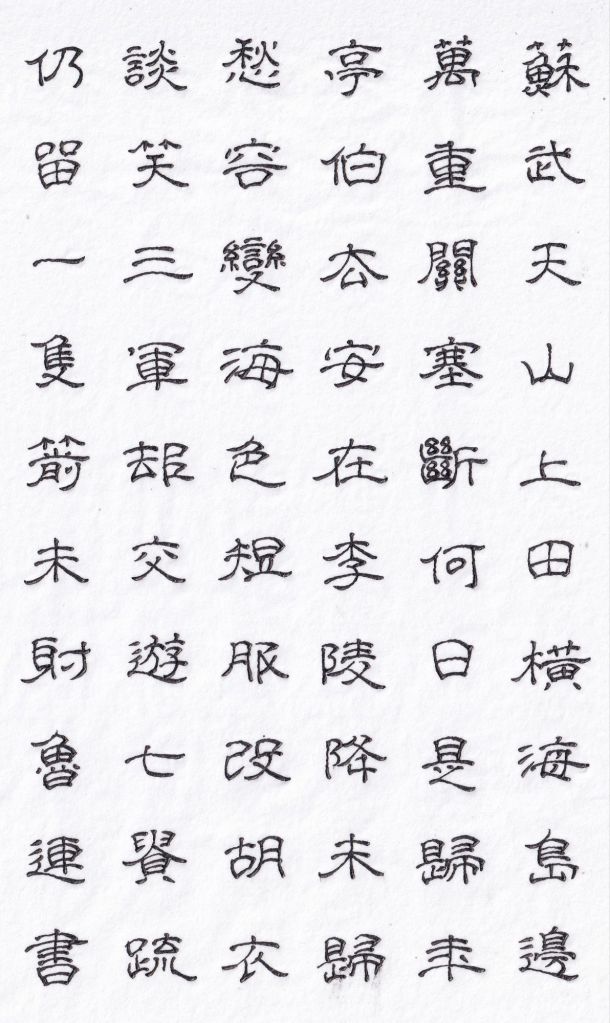 蘇武天山上田橫海島邊
萬重關塞斷何日是歸年
亭伯去安在李陵降未歸
愁容變海色短服改胡衣
談笑三軍却交遊七貴疏
仍留一隻箭未射魯連書